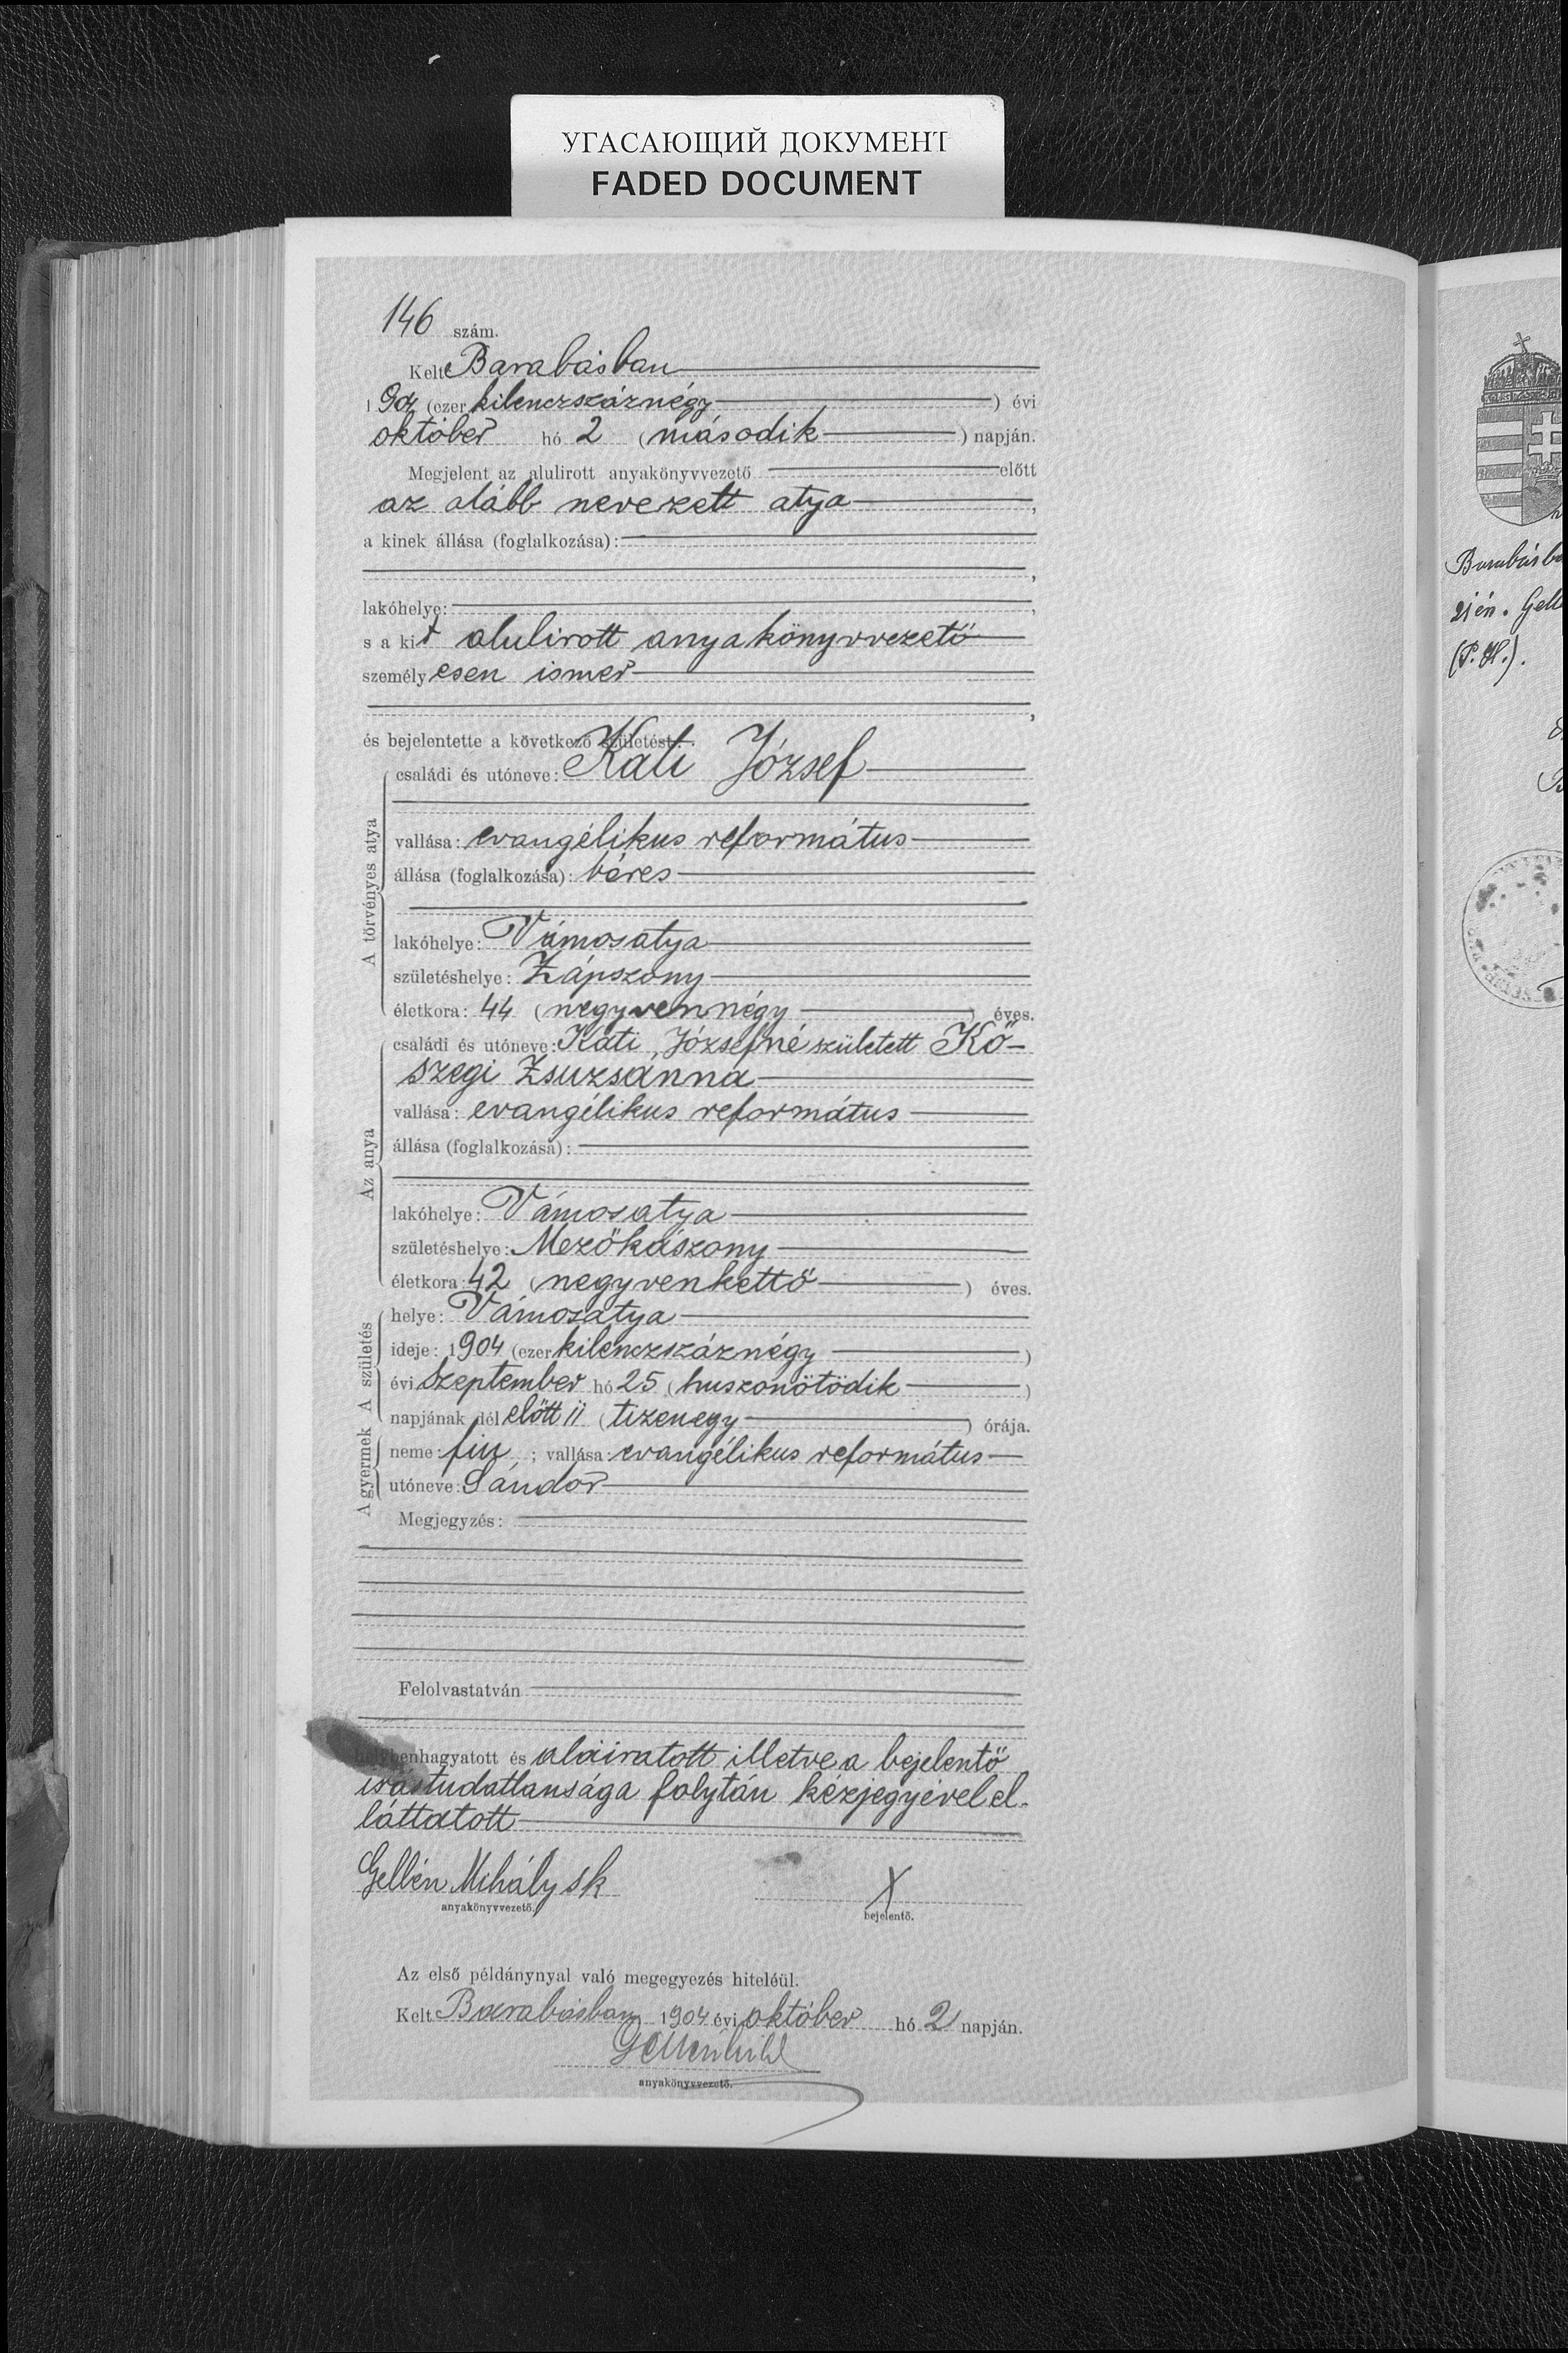 УГАСАЮЩИЙ ДОКУМЕНТ
FADED DOCUMENT
146 szám.
Kelt Barabásban
1904 (ezer kilenczszáznégy) évi
október hó 2 (második) napján.
Megjelent az alulirott anyakönyvvezető előtt
az alább nevezett atya,
a kinek állása (foglalkozása):
,
lakóhelye: ,
s a kit alulirott anyakönyvvezető
személyesen ismer
,
és bejelentette a következő születést:
A törvényes atya
családi és utóneve: Kati József
vallása: evangélikus református
állása (foglalkozása): béres
lakóhelye: Vámosatya
születéshelye: Zápszony
életkora: 44 (negyvennégy) éves.
Az anya
családi és utóneve: Kati Józsefné született Kő-
szegi Zsuzsánna
vallása: evangélikus református
állása (foglalkozása):
lakóhelye: Vámosatya
születéshelye: Mezőkászony
életkora: 42 (negyvenkettő) éves.
A születés
helye: Vámosatya
ideje: 1904 (ezer kilenczszáznégy)
évi szeptember hó 25 (huszonötödik)
napjának dél előtt 11 (tizenegy) órája.
A gyermek
neme: fiu; vallása: evangélikus református
utóneve: Sándor
Megjegyzés:
Felolvastatván
helybenhagyatott és aláiratott illetve a bejelentő
irástudatlansága folytán kézjegyével el-
láttatott
Gellén Mihály sk
anyakönyvvezető.
X
bejelentő.
Az első példánynyal való megegyezés hiteléül.
Kelt Barabásban 1904 évi október hó 2 napján.
anyakönyvvezető.
Barabásb
21én. Gell
(P. H.).